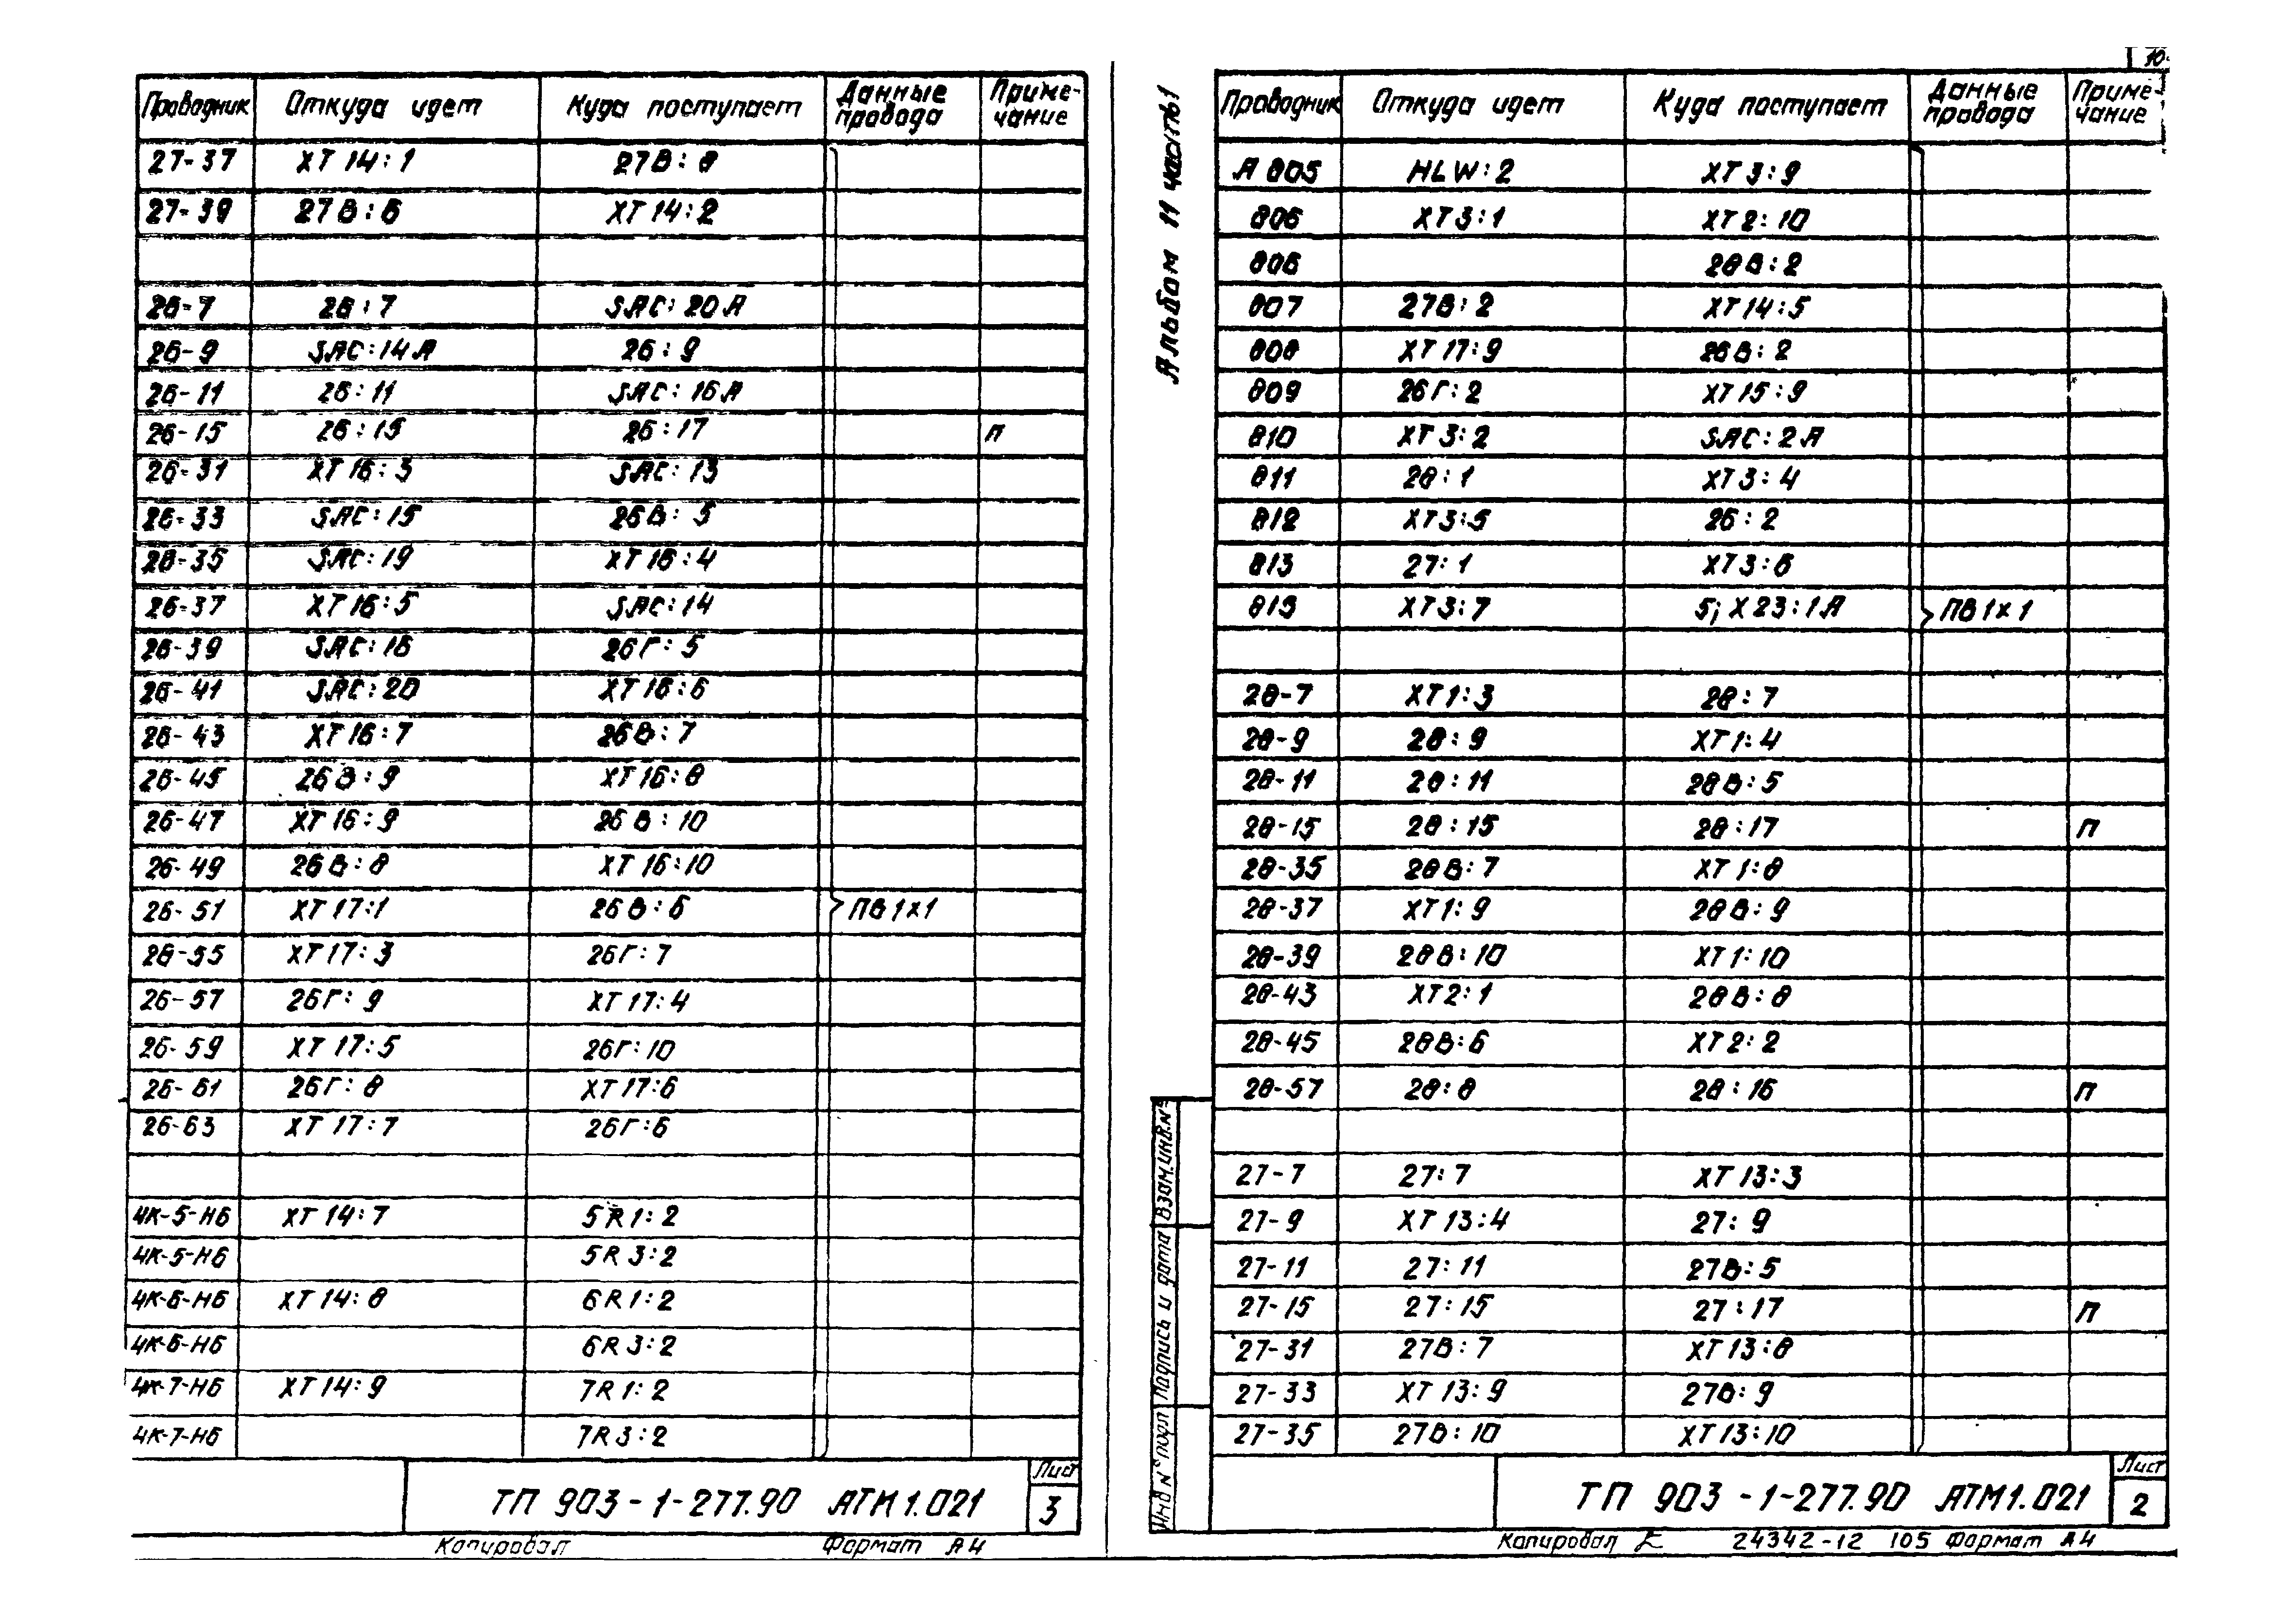 Проводник Откуда идет Куда поступает Данные провода Приме-чание
27-37 XT14:1 27В:8
27-39 27В:6 XT14:2
26-7 26:7 SAC:20A
26-9 SAC:14A 26:9
26-11 26:11 SAC:16A
26-15 26:15 26:17 П
26-31 XT16:3 SAC:13
26-33 SAC:15 26В:5
26-35 SAC:19 XT16:4
26-37 XT16:5 SAC:14
26-39 SAC:16 26Г:5
26-41 SAC:20 XT16:6
26-43 XT16:7 26В:7
26-45 26В:9 XT16:8
26-47 XT16:9 26В:10
26-49 26В:8 XT16:10
26-51 XT17:1 26В:6 ПВ1х1
26-55 XT17:3 26Г:7
26-57 26Г:9 XT17:4
26-59 XT17:5 26Г:10
26-61 26Г:8 XT17:6
26-63 XT17:7 26Г:6
4К-5-Н6 XT14:7 5R1:2
4К-5-Н6 5R3:2
4К-6-Н6 XT14:8 6R1:2
4К-6-Н6 6R3:2
4К-7-Н6 XT14:9 7R1:2
4К-7-Н6 7R3:2
ТП 903-1-277.90 АТМ1.021
Лист
3
Копировал Формат А4
Альбом 11 часть1
10
Проводник Откуда идет Куда поступает Данные провода Приме-чание
А805 HLW:2 XT3:9
806 XT3:1 XT2:10
806 28В:2
807 27В:2 XT14:5
808 XT17:9 26В:2
809 26Г:2 XT15:9
810 XT3:2 SAC:2A
811 28:1 XT3:4
812 XT3:5 26:2
813 27:1 XT3:6
815 XT3:7 5; X23:1A ПВ1х1
28-7 XT1:3 28:7
28-9 28:9 XT1:4
28-11 28:11 28В:5
28-15 28:15 28:17 П
28-35 28В:7 XT1:8
28-37 XT1:9 28В:9
28-39 28В:10 XT1:10
28-43 XT2:1 28В:8
28-45 28В:6 XT2:2
28-57 28:8 28:16 П
27-7 27:7 XT13:3
27-9 XT13:4 27:9
27-11 27:11 27В:5
27-15 27:15 27:17 П
27-31 27В:7 XT13:8
27-33 XT13:9 27В:9
27-35 27В:10 XT13:10
Инв N° подл Подпись и дата Взам.инв.N°
ТП 903-1-277.90 АТМ1.021
Лист
2
Копировал 24342-12 105 Формат А4